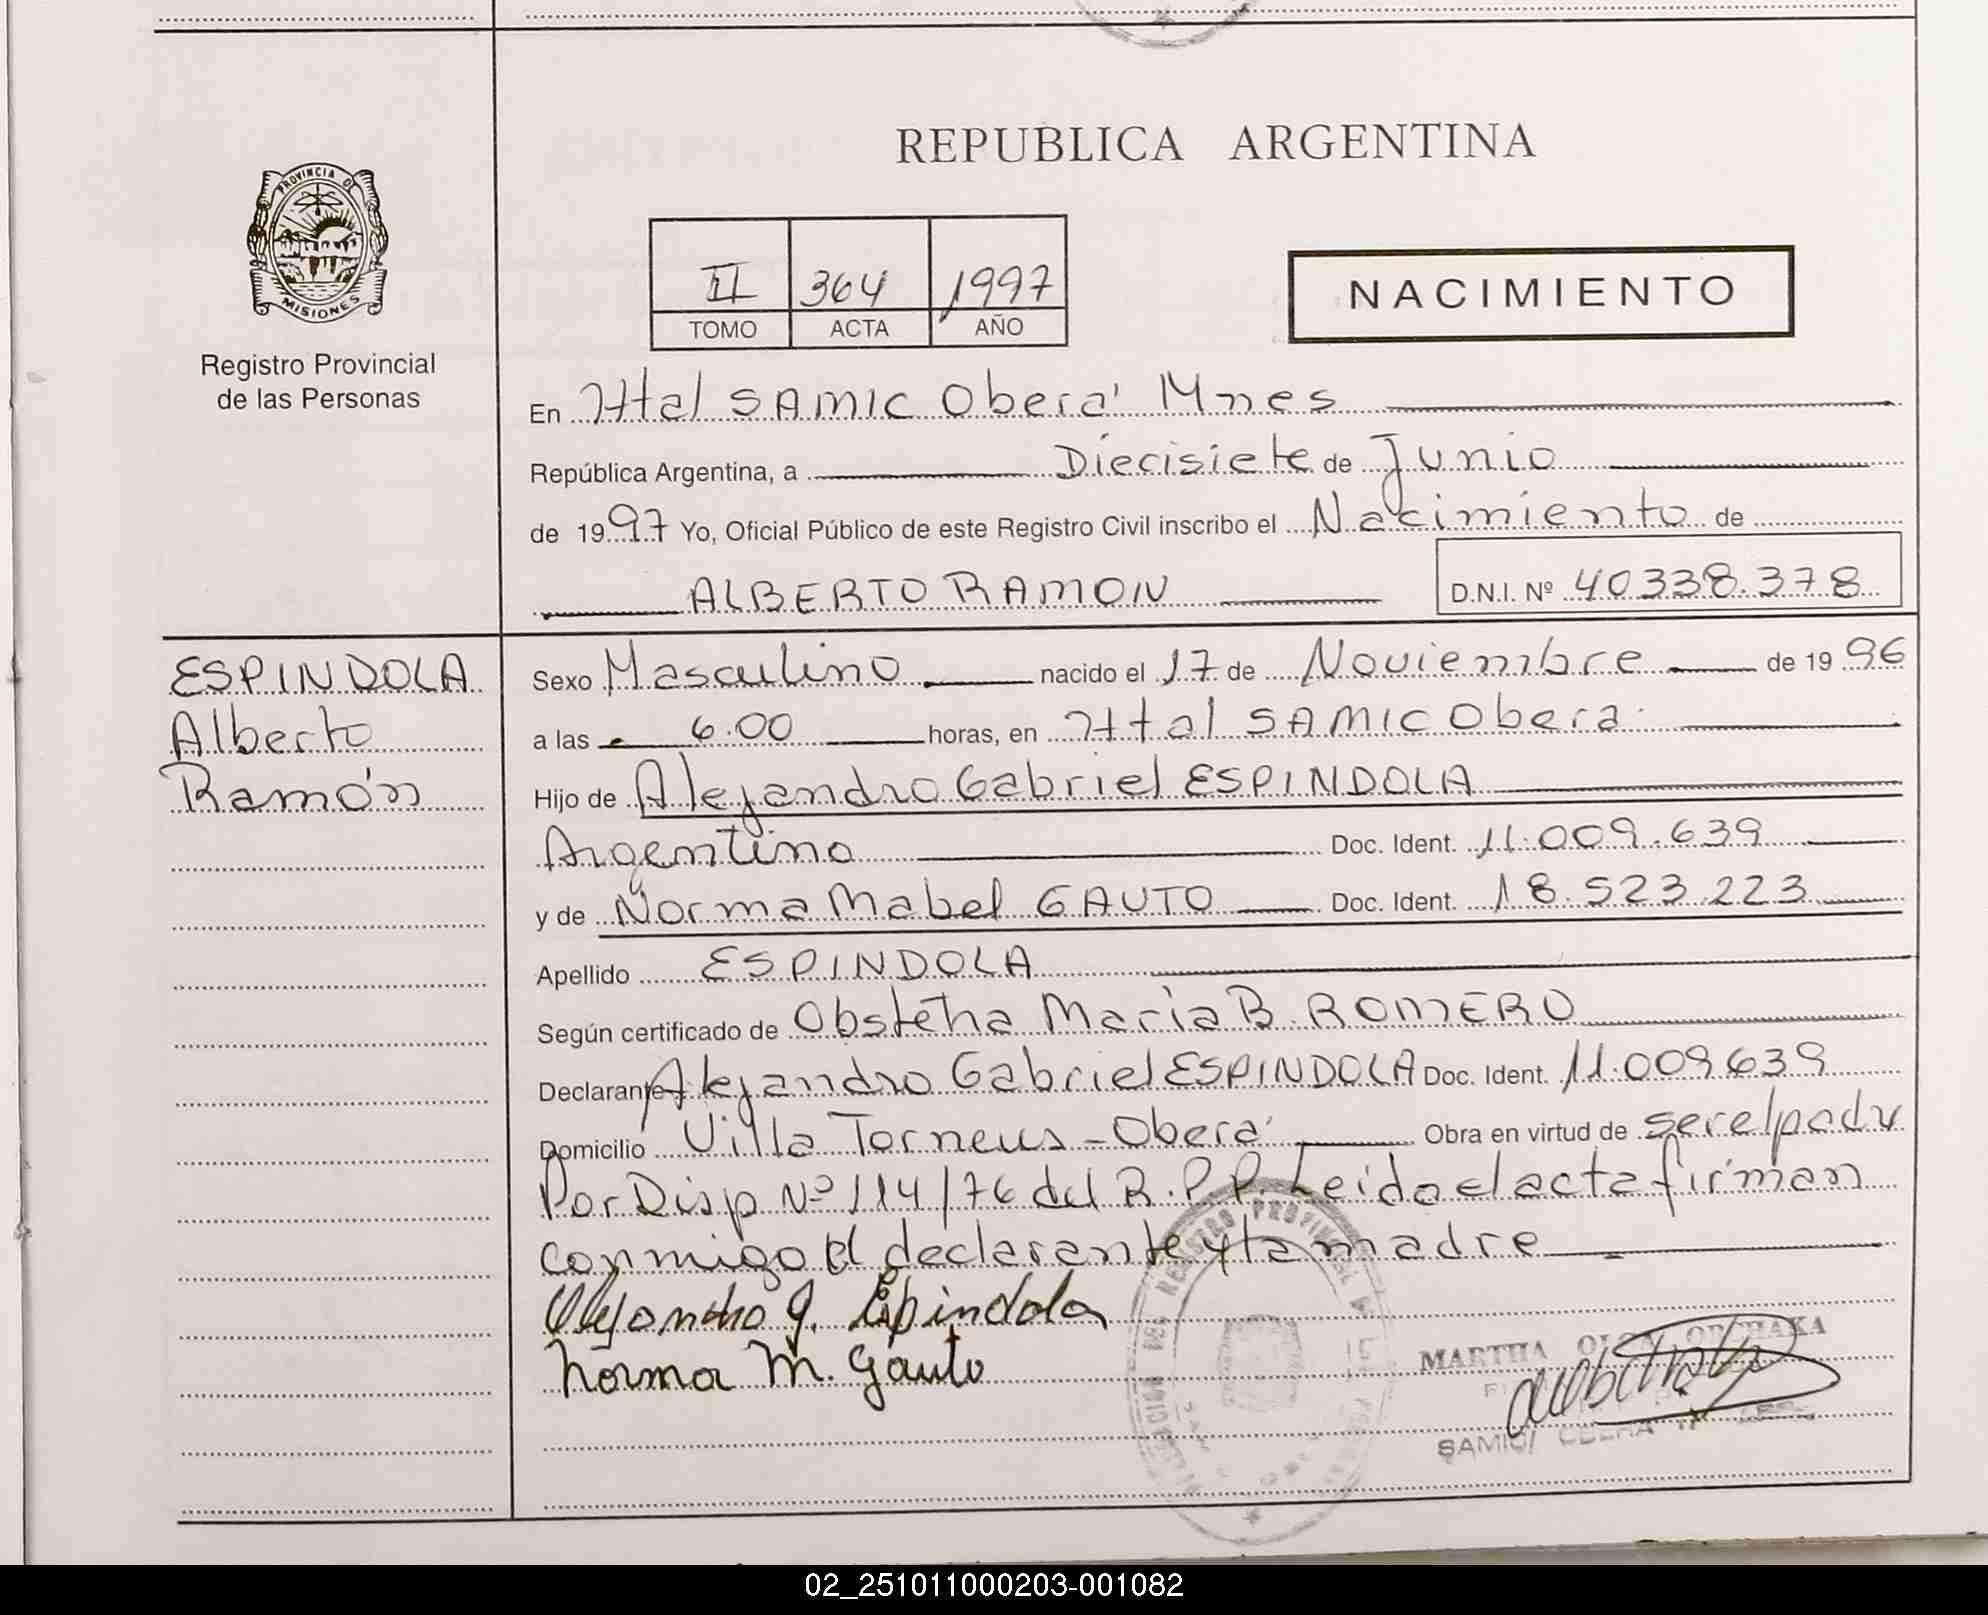 REPUBLICA ARGENTINA
PROVINCIA DE
MISIONES
Registro Provincial
de las Personas
II 364 1997
TOMO ACTA AÑO
NACIMIENTO
En Htal SAMIC Oberá Mnes
República Argentina, a Diecisiete de Junio
de 1997 Yo, Oficial Público de este Registro Civil inscribo el Nacimiento de
ALBERTO RAMON D.N.I. Nº 40338.378
ESPINDOLA
Alberto
Ramón
Sexo Masculino nacido el 17 de Noviembre de 1996
a las 6.00 horas, en Htal SAMIC Obera
Hijo de Alejandro Gabriel ESPINDOLA
Argentino Doc. Ident. 11.009.639
y de Norma Mabel GAUTO Doc. Ident. 18.523.223
Apellido ESPINDOLA
Según certificado de Obstetra Maria B. ROMERO
Declarante Alejandro Gabriel ESPINDOLA Doc. Ident. 11.009639
Domicilio Villa Torneus - Oberá Obra en virtud de ser el padre
Por Disp Nº 114/76 del R.P.P. Leida el acta firman
conmigo el declarante y la madre
Alejandro G. Espindola
Norma M. Gauto
REGISTRO PROVINCIAL
MARTHA OLGA
SAMIC/ OBERA
02_251011000203-001082